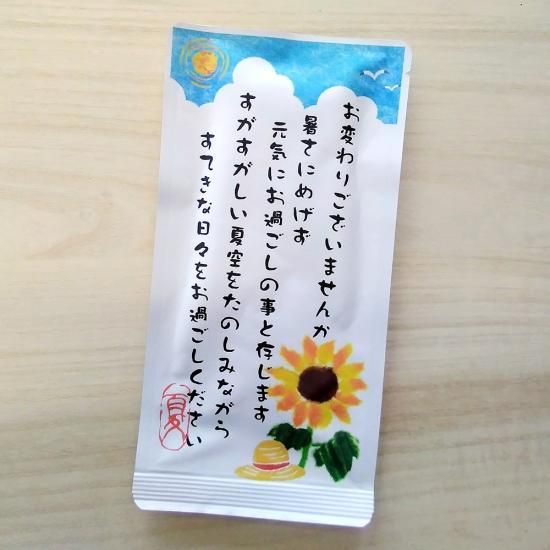 お変わりございませんか
暑さにめげず
元気にお過ごしの事と存じます
すがすがしい夏空をたのしみながら
すてきな日々をお過ごしください
夏